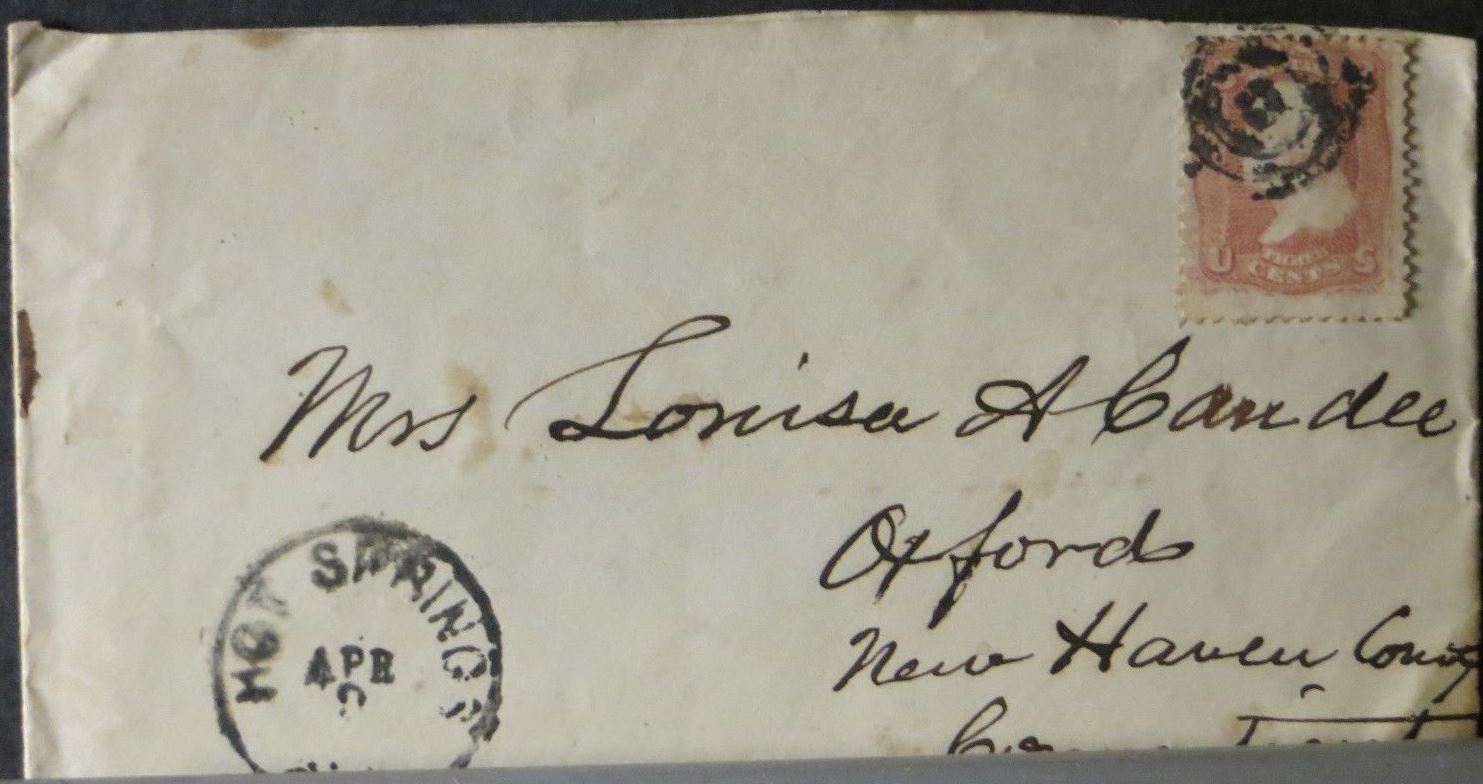 U THREE S
CENTS
Mrs Louisa A Candee
Oxford
New Haven County
HOT SPRINGS
APR